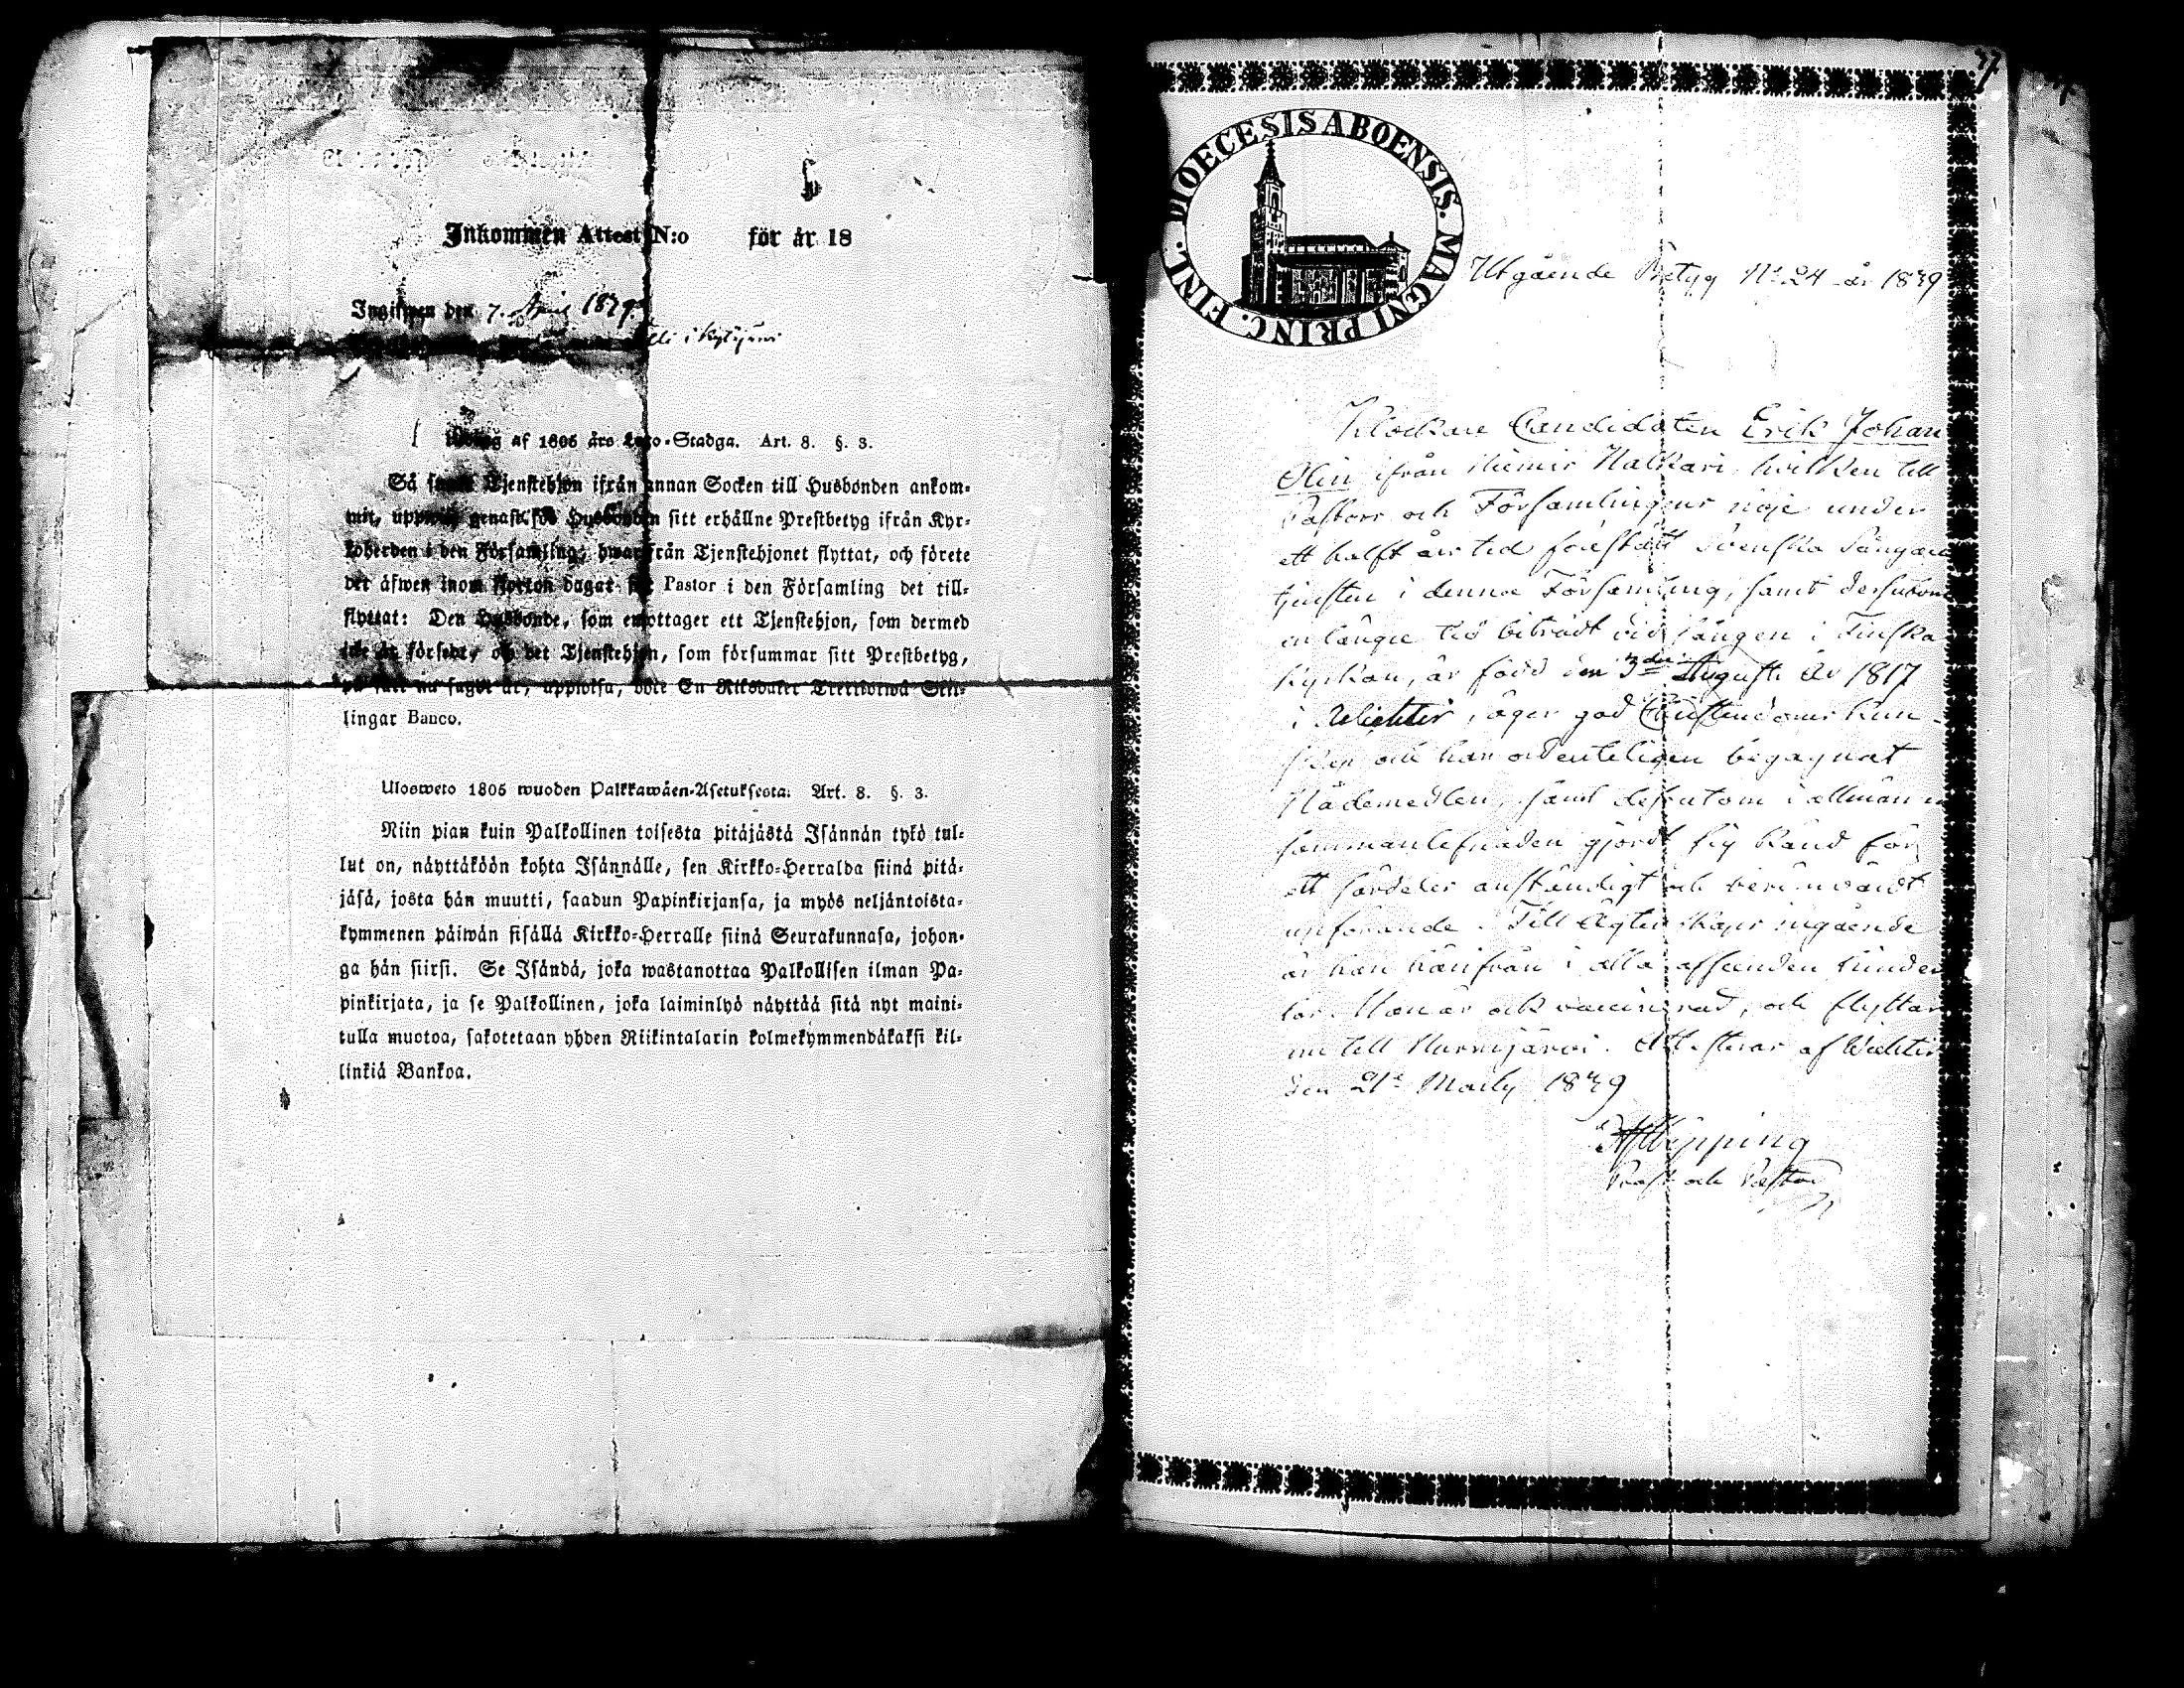 Inkommen Attest N:o för år 18
Ingifwen den 7. April 1839.
i Kytäjärvi
Utdrag af 1805 års Lego-Stadga. Art. 8. §. 3.
Så snart Tjenstehjon ifrån annan Socken till Husbonden ankom-
mit, uppwise genast för Husbonden sitt erhållne Prestbetyg ifrån Kyr-
koherden i den Församling, hwarifrån Tjenstehjonet flyttat, och förete
det äfwen inom fjorton dagar för Pastor i den Församling det till-
flyttat: Den Husbonde, som emottager ett Tjenstehjon, som dermed
icke är försedt, och det Tjenstehjon, som försummar sitt Prestbetyg,
på sätt nu sagdt är, uppwisa, böte En Riksdaler Trettiotwå Skil-
lingar Banco.
Ulosweto 1805 wuoden Palkkawäen-Asetuksesta. Art. 8. §. 3.
Niin pian kuin Palkollinen toisesta pitäjästä Isännän tykö tul-
lut on, näyttäköön kohta Isännälle, sen Kirkko-Herralda siinä pitä-
jäsä, josta hän muutti, saadun Papinkirjansa, ja myös neljäntoista-
kymmenen päiwän sisällä Kirkko-Herralle siinä Seurakunnasa, johon-
ga hän siirsi. Se Isändä, joka wastanottaa Palkollisen ilman Pa-
pinkirjata, ja se Palkollinen, joka laiminlyö näyttää sitä nyt maini-
tulla muotoa, sakotetaan yhden Riikintalarin kolmekymmendäkaksi kil-
linkiä Bankoa.
77
DIOECESIS ABOENSIS. MAGNI PRINC. FINL.
Utgående Betyg No 24 år 1839
Klockare Candidaten Erik Johan
Olin ifrån Niemis Halkari hvilken till
Pastors och Församlingens nöje under
ett halft års tid förestått Svenska Sångare
tjensten i denna Församling, samt dessutom
en längre tid biträdt vid sången i Finska
Kyrkan, är född den 3die Augusti år 1817
i Wichtis, äger god Christendoms kun-
skap och har ordenteligen begagnat
Nådemedlen, samt dessutom i allmänna
sammanlefnaden gjordt sig känd för
ett särdeles anständigt och berömvärdt
uppförande. Till Ägtenskaps ingående
är han härifrån i alla afseenden hinders
lös. Han är ock vaccinerad, och flyttar
nu till Nurmijärvi. Attesteras af Wichtis
den 21e Martij 1839
Prost och Pastor